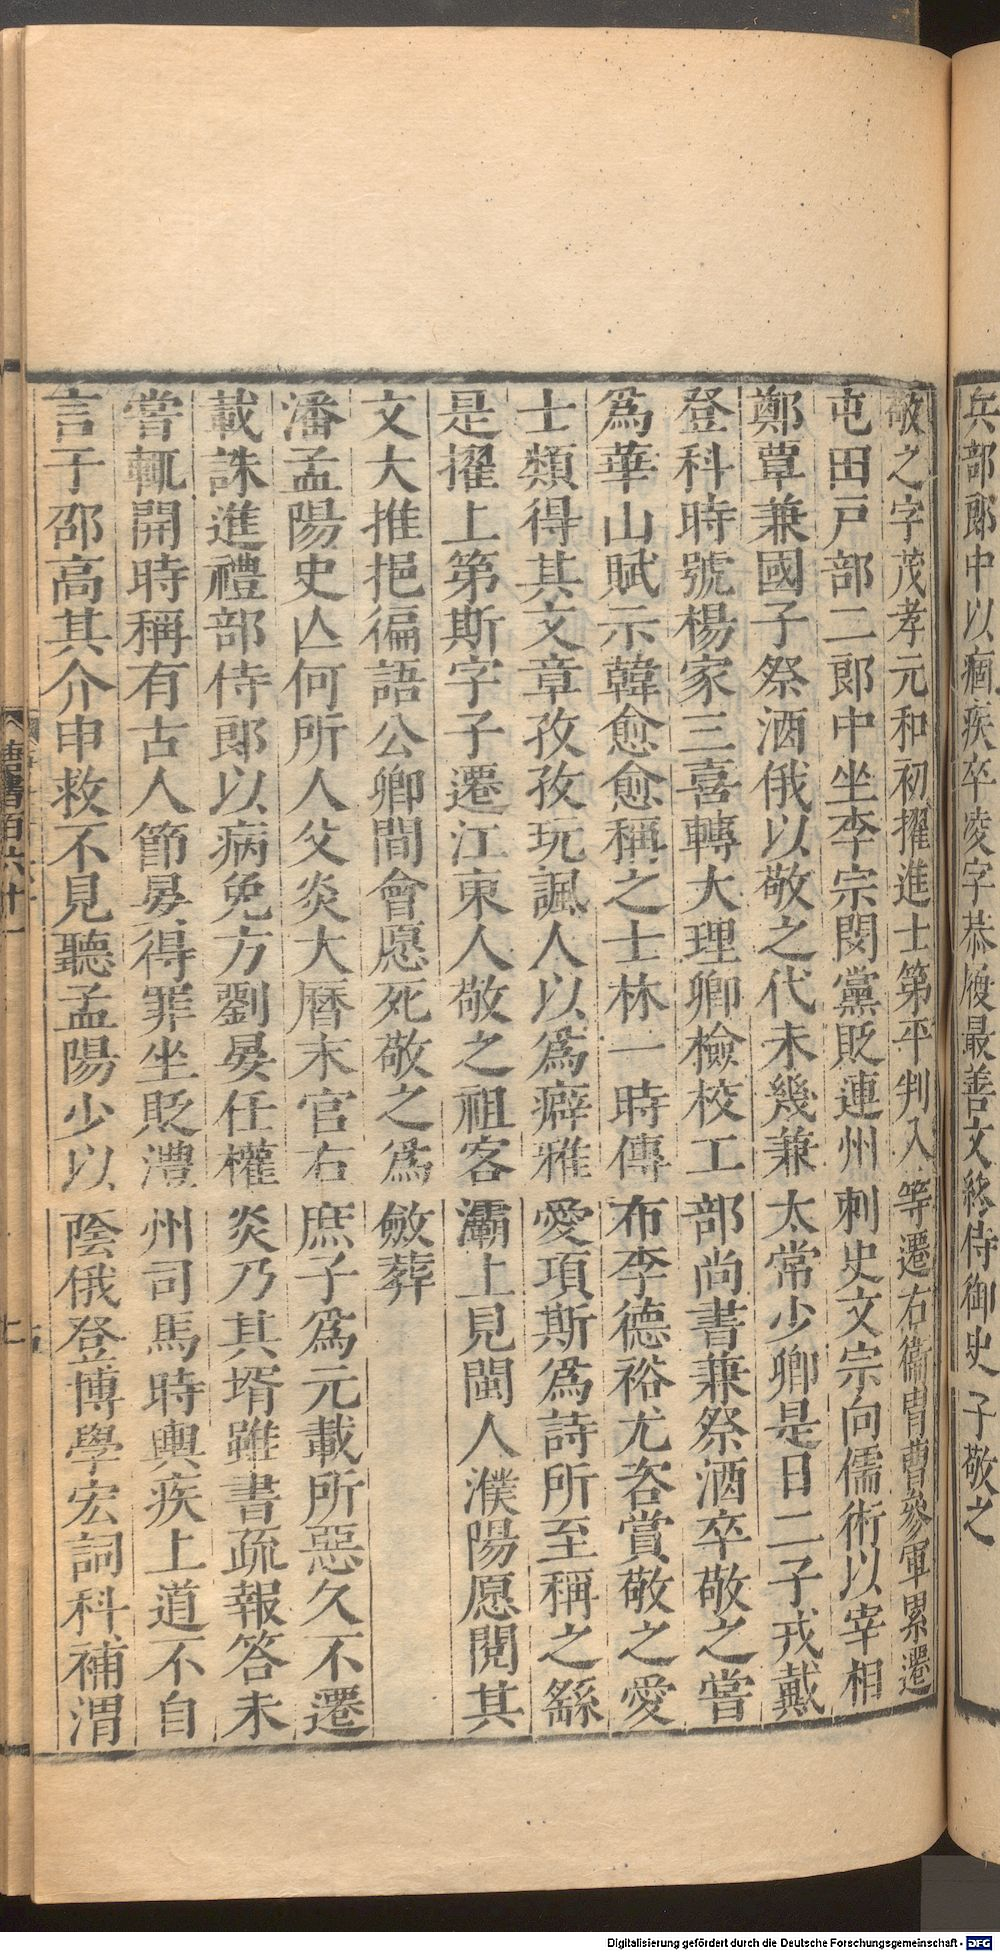 兵部郎中以痼疾卒凌字恭履最善文終侍御史 子敬之
敬之字茂孝元和初擢進士第平判入等遷右衞胄曹參軍累遷
屯田戸部二郎中坐李宗閔黨貶連州刺史文宗向儒術以宰相
鄭覃兼國子祭酒俄以敬之代未幾兼太常少卿是日二子戎戴
登科時號楊家三喜轉大理卿檢校工部尚書兼祭酒卒敬之嘗
爲華山賦示韓愈愈稱之士林一時傳布李德裕尤咨賞敬之愛
士類得其文章孜孜玩諷人以爲癖雅愛項斯爲詩所至稱之繇
是擢上第斯字子遷江東人敬之祖客灞上見閩人濮陽愿閱其
文大推挹徧語公卿間會愿死敬之爲斂葬
潘孟陽史亾何所人父炎大曆末官右庶子爲元載所惡久不遷
載誅進禮部侍郎以病免方劉晏任權炎乃其壻雖書疏報答未
嘗輒開時稱有古人節晏得罪坐貶澧州司馬時輿疾上道不自
言于邵高其介申救不見聽孟陽少以蔭俄登博學宏詞科補渭
唐書百六十
Digitalisierung gefördert durch die Deutsche Forschungsgemeinschaft - DFG